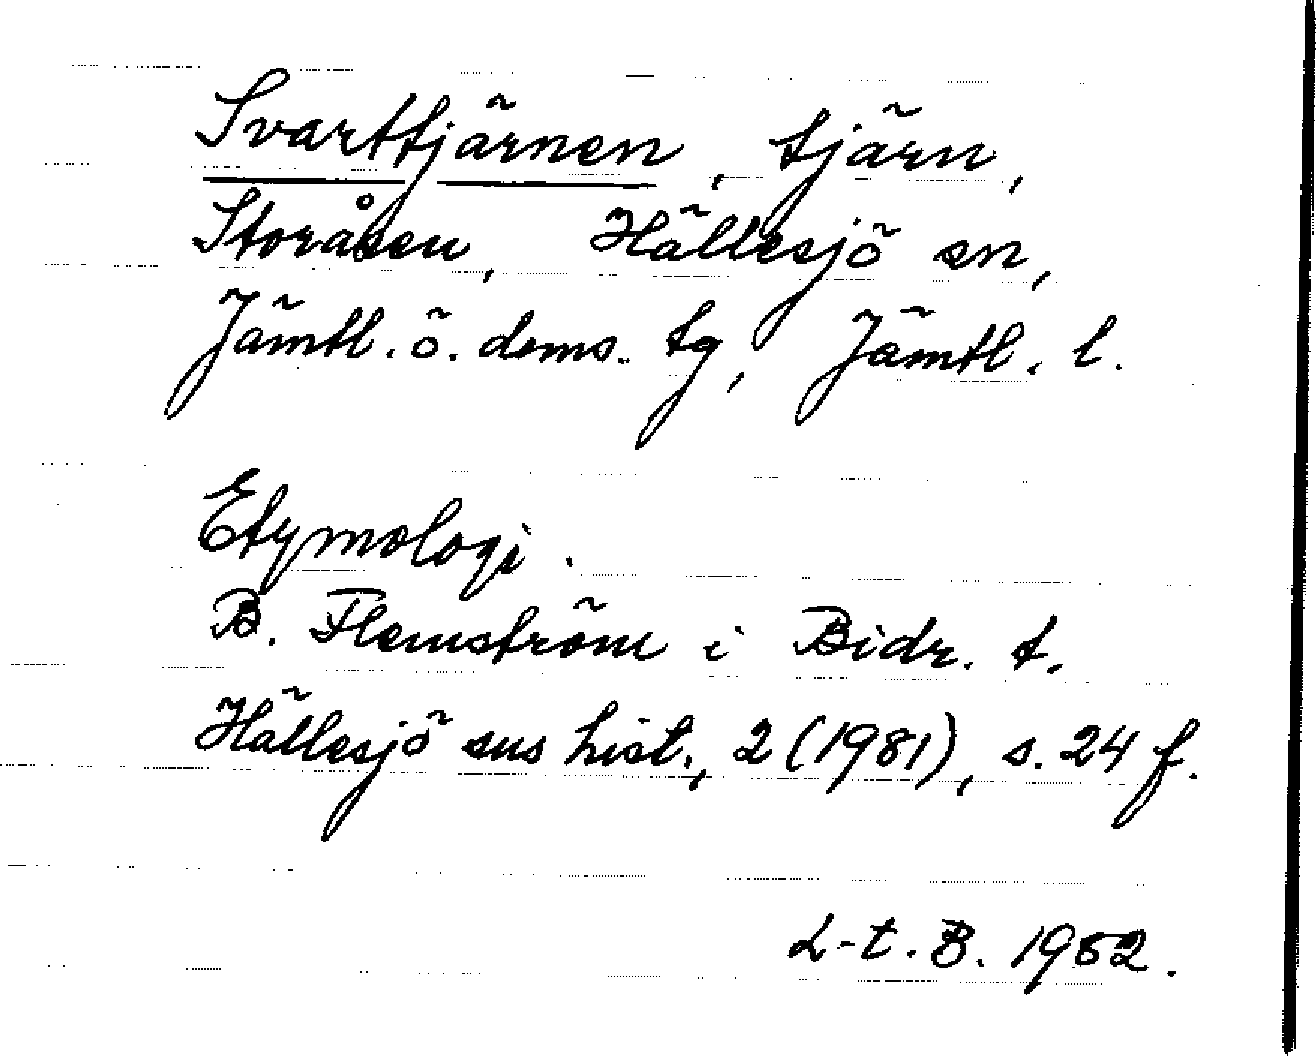 Svarttjärnen, tjärn,
Storåsen, Hällesjö sn,
Jämtl. ö. doms. tg, Jämtl. l.
Etymologi.
B. Flemström i Bidr. t.
Hällesjö sns hist., 2 (1981), s. 24 f.
L-t. B. 1982.